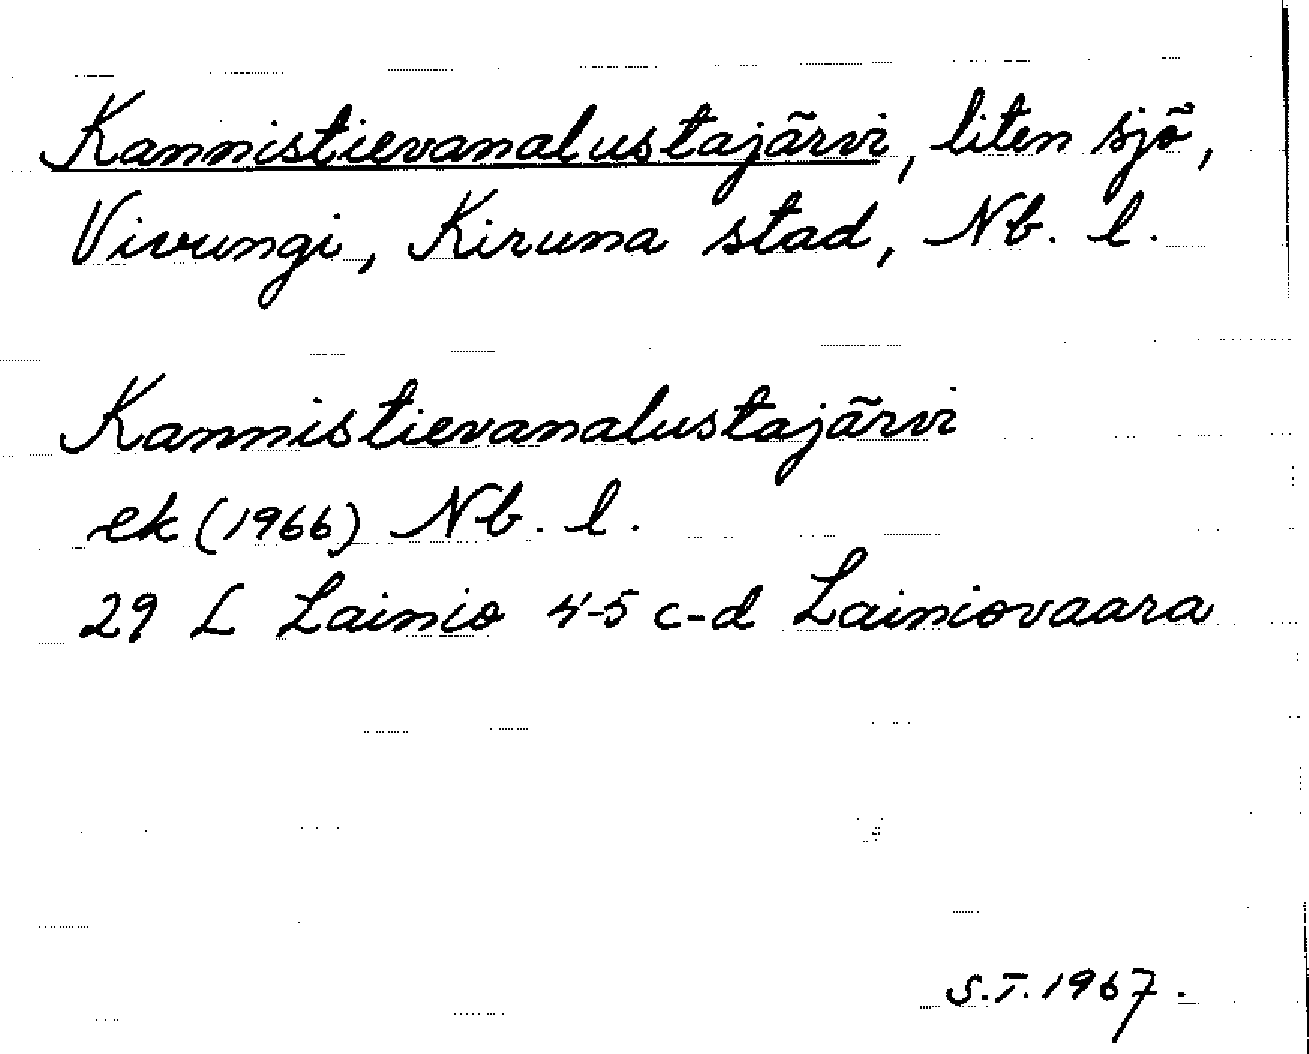 Kannistievanalustajärvi, liten sjö,
Vivungi, Kiruna stad, Nb. l.
Kannistievanalustajärvi
ek (1966) Nb. l.
29 L Lainio 4-5 c-d Lainiovaara
S.T. 1967.